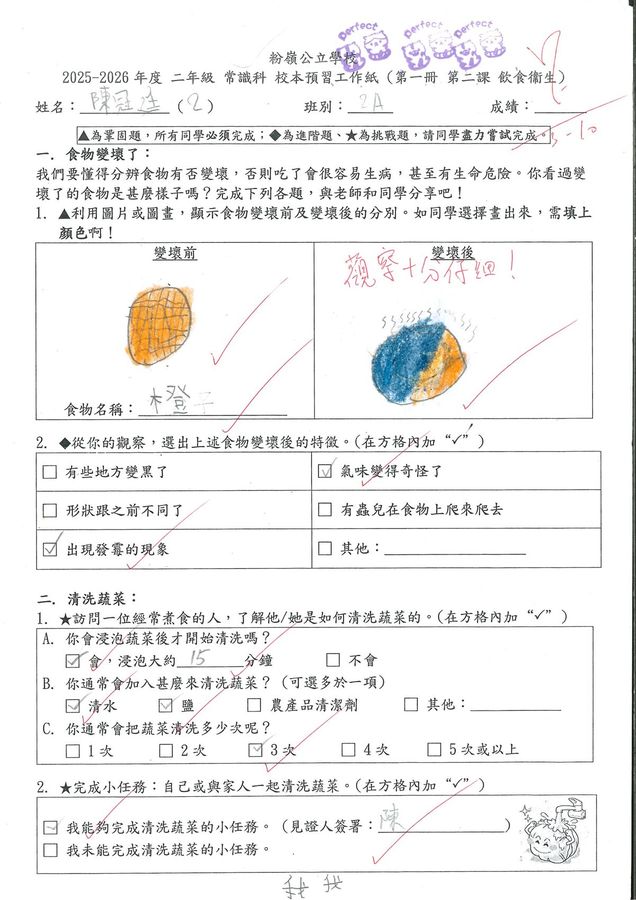 Perfect Perfect Perfect
粉嶺公立學校
2025-2026 年度 二年級 常識科 校本預習工作紙（第一冊 第二課 飲食衞生）
姓名：陳冠 (2) 班別：2A 成績：
▲為鞏固題，所有同學必須完成；◆為進階題、★為挑戰題，請同學盡力嘗試完成。
-10
一．食物變壞了：
我們要懂得分辨食物有否變壞，否則吃了會很容易生病，甚至有生命危險。你看過變
壞了的食物是甚麼樣子嗎？完成下列各題，與老師和同學分享吧！
1. ▲利用圖片或圖畫，顯示食物變壞前及變壞後的分別。如同學選擇畫出來，需填上
顏色啊！
變壞前 變壞後
觀察十分仔細！
食物名稱：橙子
2. ◆從你的觀察，選出上述食物變壞後的特徵。(在方格內加“✓”)
□ 有些地方變黑了 ☑ 氣味變得奇怪了
□ 形狀跟之前不同了 □ 有蟲兒在食物上爬來爬去
☑ 出現發霉的現象 □ 其他：
二．清洗蔬菜：
1. ★訪問一位經常煮食的人，了解他/她是如何清洗蔬菜的。(在方格內加“✓”)
A. 你會浸泡蔬菜後才開始清洗嗎？
☑ 會，浸泡大約 15 分鐘 □ 不會
B. 你通常會加入甚麼來清洗蔬菜？（可選多於一項）
☑ 清水 ☑ 鹽 □ 農產品清潔劑 □ 其他：
C. 你通常會把蔬菜清洗多少次呢？
□ 1 次 □ 2 次 ☑ 3 次 □ 4 次 □ 5 次或以上
2. ★完成小任務：自己或與家人一起清洗蔬菜。(在方格內加“✓”)
☑ 我能夠完成清洗蔬菜的小任務。（見證人簽署：陳）
□ 我未能完成清洗蔬菜的小任務。
我 我